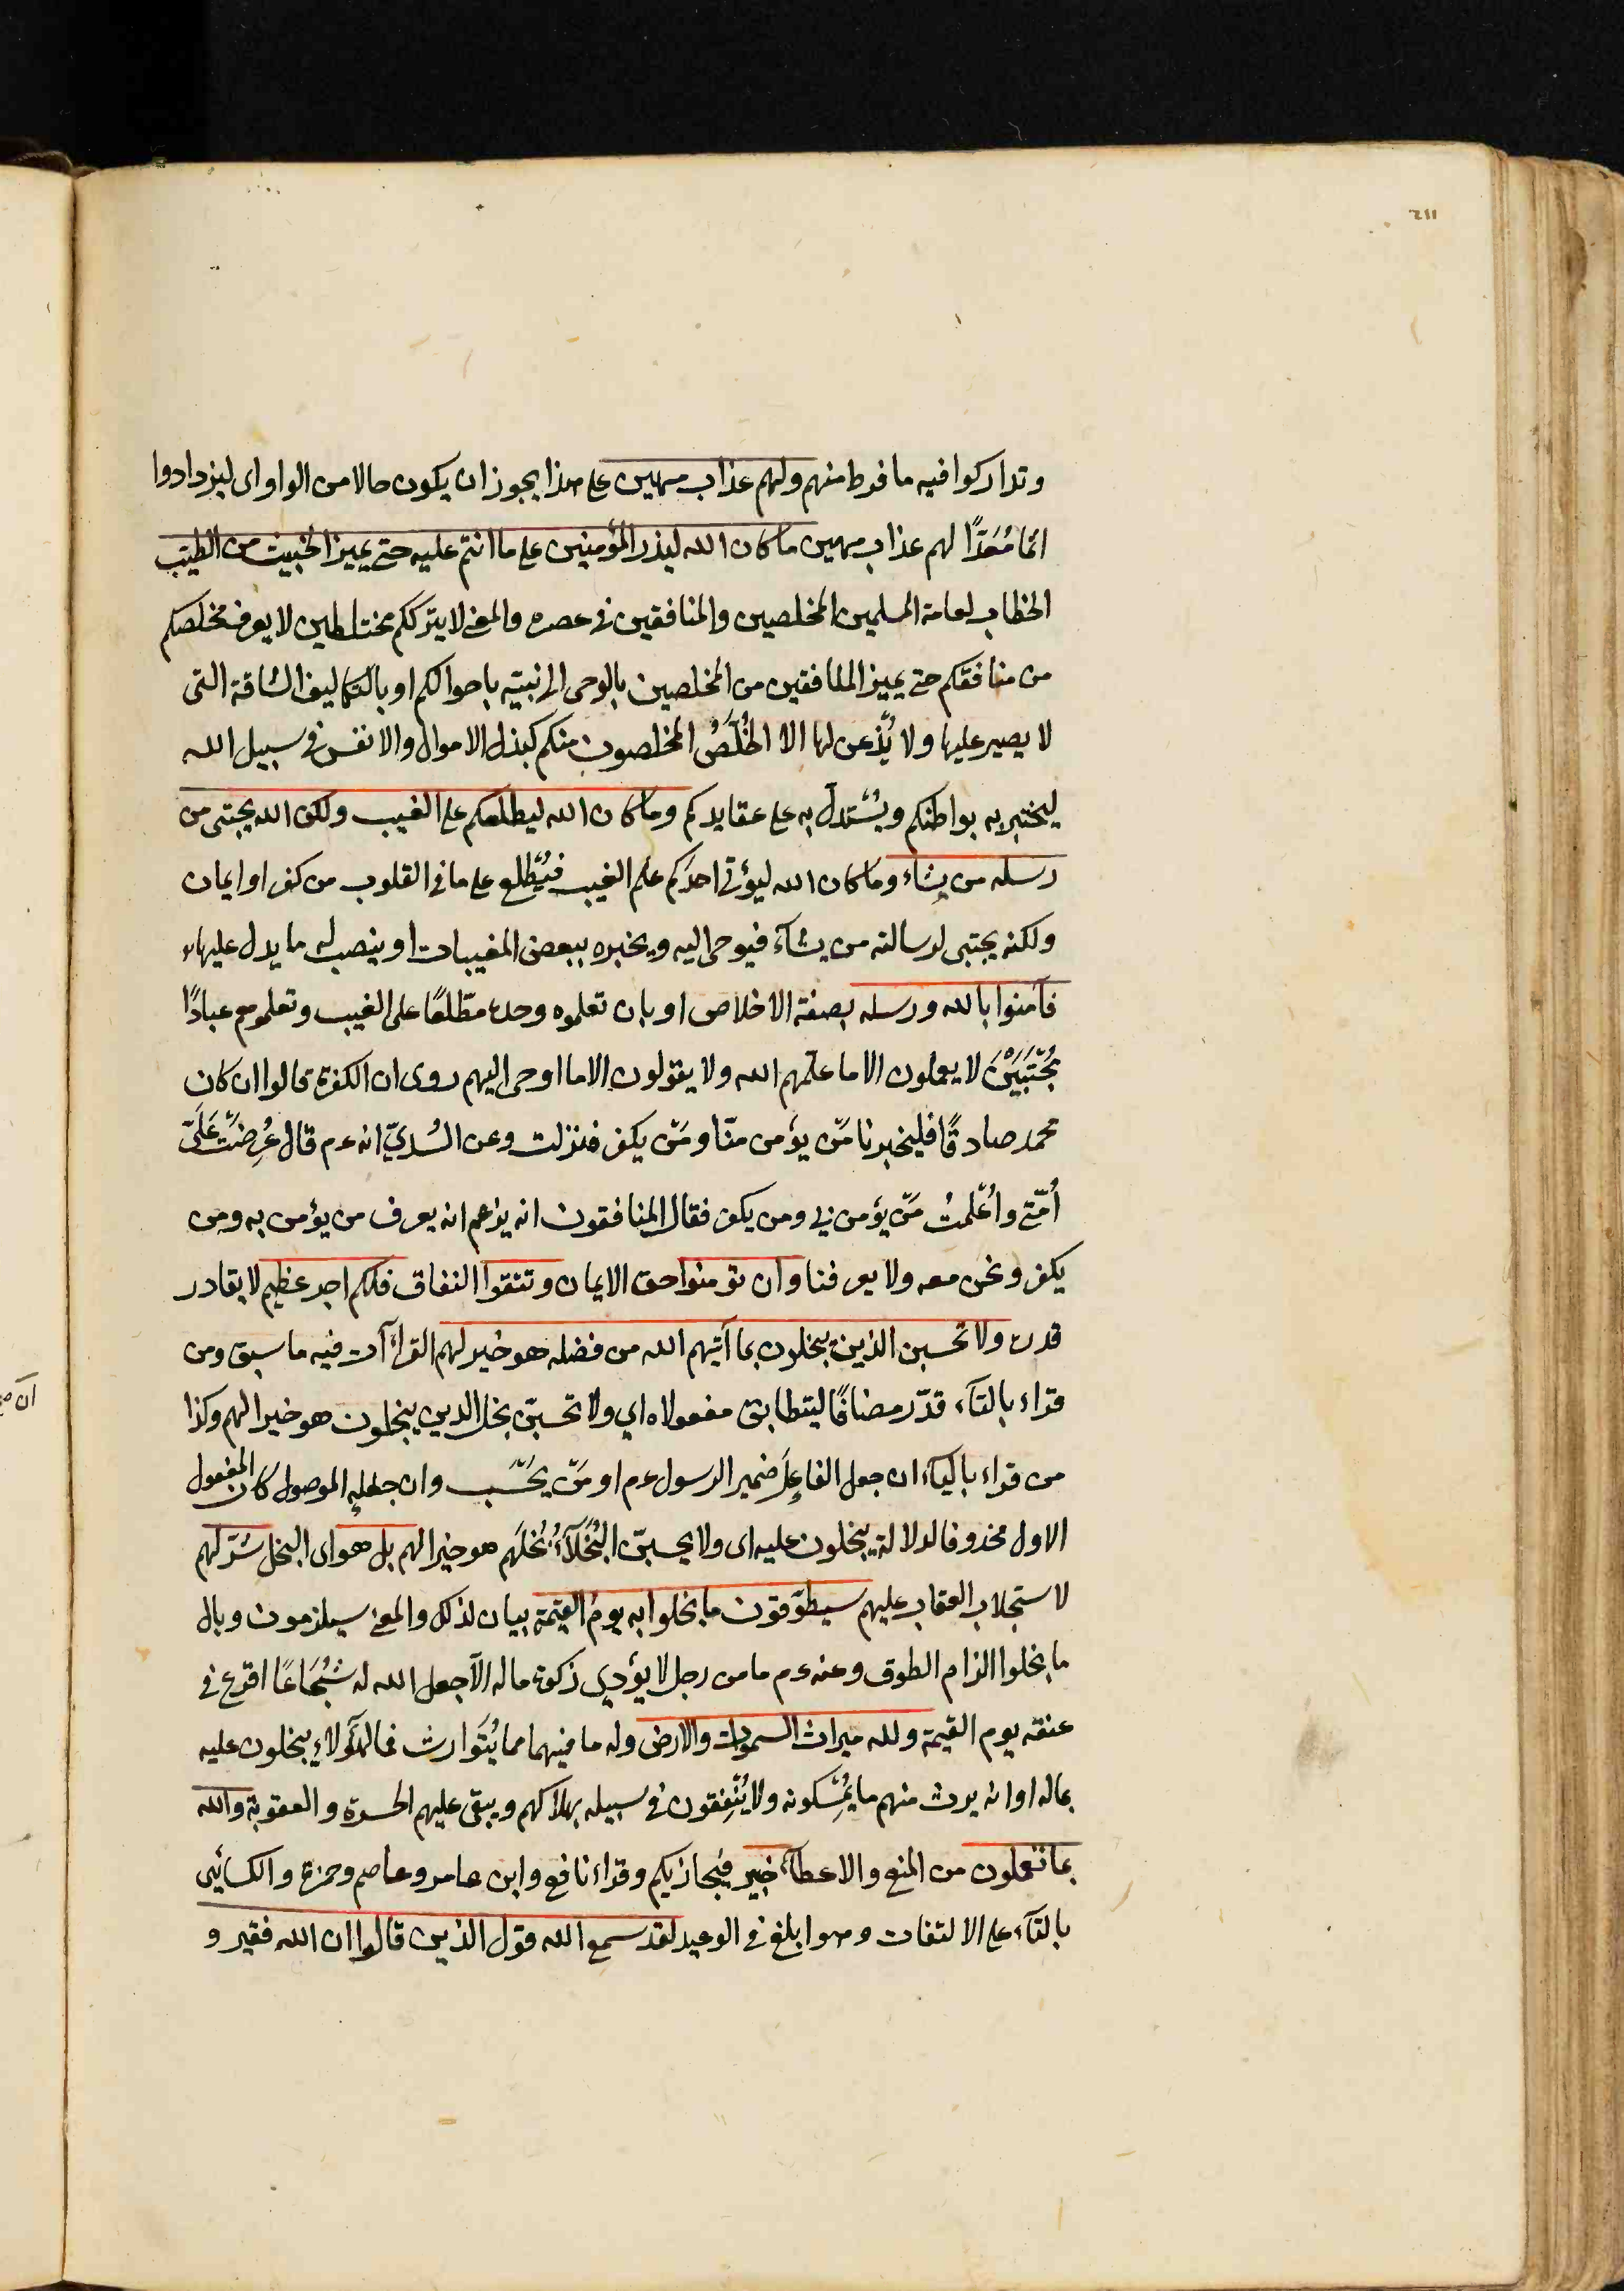 ٢١١
وتداركوا فيه ما فرط منهم ولهم عذاب مهين على هذا يجوز ان يكون حالا من الواو اى ليزدادوا
اثما مُعَدًّا لهم عذاب مهين ما كان الله ليذر المؤمنين على ما انتم عليه حتى يميز الخبيث من الطيب
الخطاب لعامة المسلمين المخلصين والمنافقين فى عصره والمعنى لا يترككم مختلطين لا يعرف مخلصكم
من منافقكم حتى يميز المنافقين من المخلصين بالوحى الى نبيّه باحوالكم او بالتكاليف الشاقة التى
لا يصبر عليها ولا يُذْعن لها الا الخُلَّصُ المخلصون منكم كبذل الاموال والانفس فى سبيل الله
ليختبر به بواطنكم ويُسْتدلّ به على عقايدكم وما كان الله ليطلعكم على الغيب ولكن الله يجتبى من
رسله من يشاء وما كان الله ليؤتى احدكم علم الغيب فيُطّلع على ما فى القلوب من كفر او ايمان
ولكنه يجتبى لرسالته من يشآء فيوحى اليه ويخبره ببعض المغيبات او ينصب له ما يدل عليها
فآمنوا بالله ورسله بصفة الاخلاص او بان تعلموه وحده مطّلعًا على الغيب وتعلموهم عبادًا
مُجْتَبَيْنَ لا يعلمون الا ما علّمهم الله ولا يقولون الا ما اوحى اليهم روى ان الكفرة قالوا ان كان
محمد صادقًا فليخبرنا مَن يؤمن منّا ومَن يكفر فنزلت وعن السُّدىّ انه ءم قال عُرِضَتْ عَلَىَّ
أُمّتى وأُعْلمتُ مَن يؤمن بى ومن يكفر فقال المنافقون انه يزعم انه يعرف من يؤمن به ومن
يكفر ونحن معه ولا يعرفنا وان تؤمنوا حق الايمان وتتقوا النفاق فلكم اجر عظيم لا يقادر
قدره ولا تحسبن الذين يبخلون بما آتيهم الله من فضله هو خير لهم القراآت فيه ما سبق ومن
قراء بالتآء قدّر مضافًا ليتطابق مفعولاه اي ولا تحسبنّ بخل الذين يبخلون هو خيرا لهم وكذا
من قراء بالياء ان جعل الفاعِلَ ضمير الرسول ءم او مَن يَحْسَب وان جعله الموصول كان المفعول
الاول محذوفا لدلالة يبخلون عليه اى ولا يحسبنّ البُخَلَآءُ بُخْلَهم هو خيرا لهم بل هو اى البخل شرّ لهم
لاستجلاب العقاب عليهم سيطوّقون ما بخلوا به يوم القيمة بيان لذلك والمعنى سيلزمون وبال
ما بخلوا الزام الطوق وعنه ءم ما من رجل لا يؤدي زكوة ماله الّا جعل الله له شُجَاعًا اقرع فى
عنقه يوم القيمة ولله ميراث السموات والارض وله ما فيهما مما يُتَوَارث فما لهؤلاءِ يبخلون عليه
بماله او انه يرث منهم ما يُمْسِكونه ولا يُنْفِقون فى سبيله بهلاكهم ويبقى عليهم الحسرة والعقوبة والله
بما تعملون من المنع والاعطاء خبير فيجازيكم وقراء نافع وابن عامر وعاصم وحمزة والكسائى
بالتآء على الالتفات وهو ابلغ فى الوعيد لقد سمع الله قول الذين قالوا ان الله فقير و